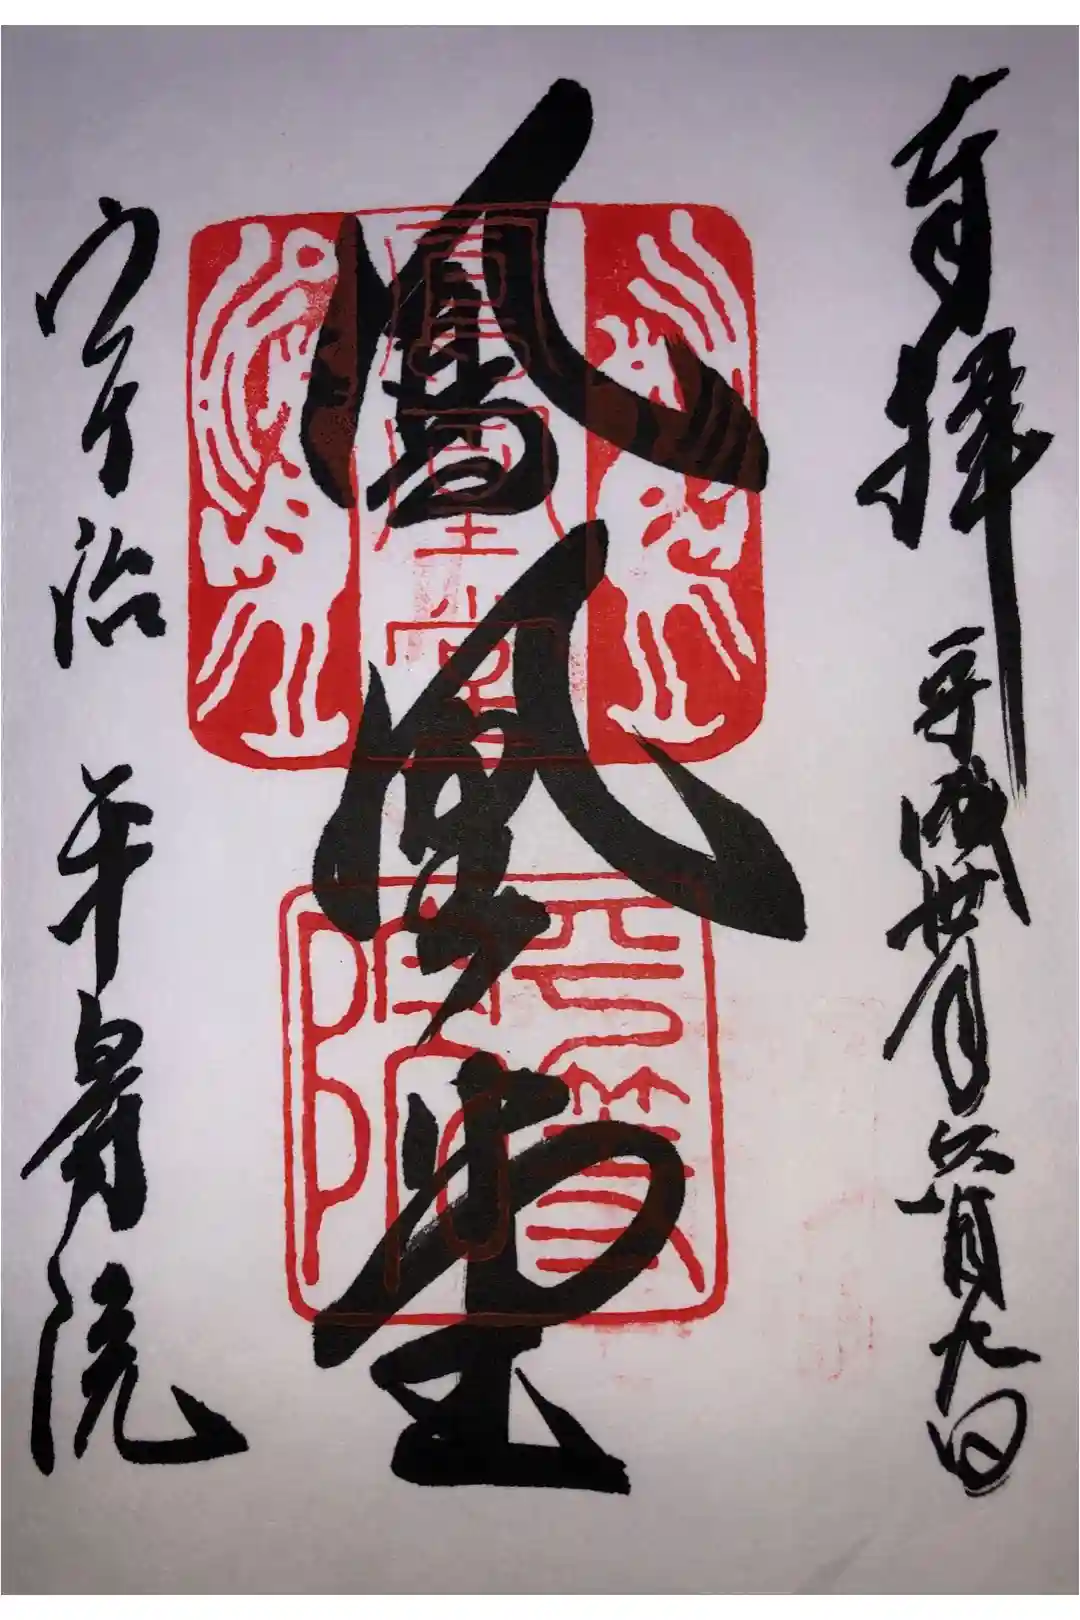 奉拝 平成丗年六月九日
鳳凰堂
鳳凰堂
平等院
宇治 平等院